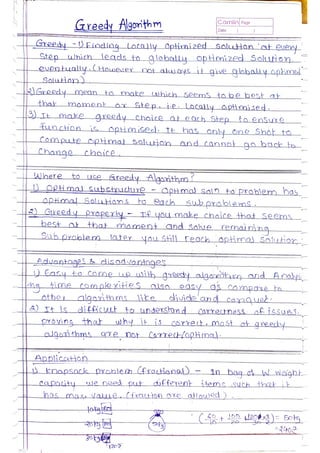 Greedy Algorithm
Camlin Page
Date
Greedy - 1) Finding Locally Optimized solution at every
Step which leads to globally optimized Solution
eventually. (However not always it give globally optimal
Solution)
2) Greedy mean to make which seems to be best at
that moment or Step. i.e. Locally optimised.
3) It make greedy choice at each Step to ensure
function is optimised. It has only one Shot to
Compute optimal solution and cannot go back to
Change choice.
Where to use Greedy Algorithm?
1) Optimal substructure - Optimal soln to problem has
optimal Solutions to each subproblems.
2) Greedy property - If you make choice that seems
best at that moment and solve remaining
Sub problem later you still reach optimal solution
Advantages & disadvantages
1) Easy to come up with greedy algorithm and Analyz
ing time complexities also easy as compare to
other algorithms like divide and conquer
2) It is difficult to understand correctness of issues.
proving that why it is correct, most of greedy
algorithms are not correct/optimal.
Application
1) knapsack problem (fractional) - In bag of W weight
capacity we need put different items such that it
has max value. (fraction are allowed).
10kg
20kg
30kg
= 50kg